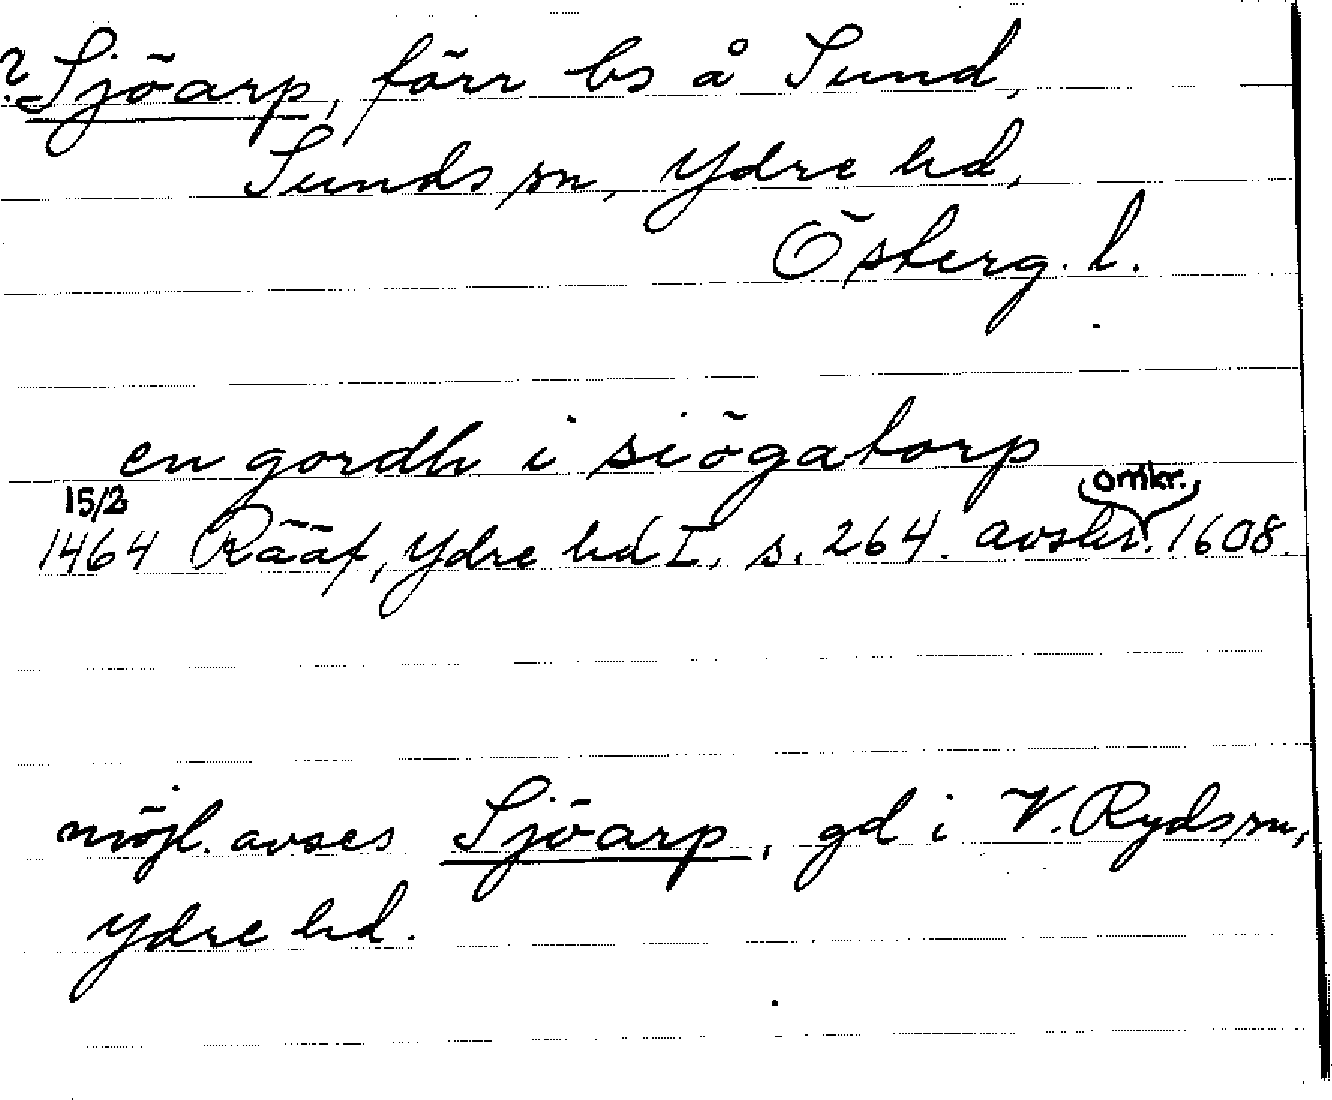 ? Sjöarp, förr bs å Sund,
Sunds sn, Ydre hd,
Österg. l.
en gordh i siögatorp
15/2 omkr.
1464 Rääf, Ydre hd I, s. 264. avskr. 1608.
möjl. avses Sjöarp, gd i V. Ryds sn,
Ydre hd.